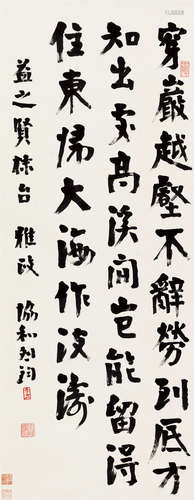 穿巖越壑不辭勞到底方
知出處高溪澗豈能留得
住東歸大海作波濤
益之賢棣台 雅政 協和烈鈞